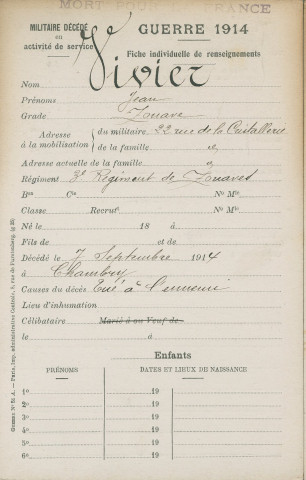 MORT POUR LA FRANCE
MILITAIRE DÉCÉDÉ
en
activité de service
GUERRE 1914
Fiche individuelle de renseignements
Nom Vivier
Prénoms Jean
Grade Zouave
Adresse à la mobilisation { du militaire 22 rue de la Cristallerie
de la famille d°
Adresse actuelle de la famille d°
Régiment 3e Régiment de Zouaves
Bon Cie No Mle
Classe Recrut No Mle
Né le 18 à
Fils de et de
Décédé le 7 Septembre 1914
à Chambry
Causes du décès Tué à l'ennemi
Lieu d'inhumation
Célibataire Marié à ou Veuf de
le à
Enfants
PRÉNOMS DATES ET LIEUX DE NAISSANCE
1o 19
2o 19
3o 19
4o 19
5o 19
6o 19